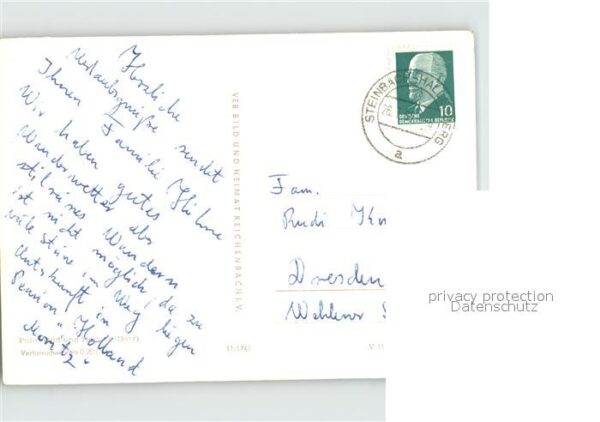 Herzliche
Urlaubsgrüße sendet
Ihnen Familie Hühne
Wir haben gutes
Wanderwetter aber
stilreines Wandern
ist nicht möglich, da zu
viele Steine im Weg liegen
Unterkunft in
Pension "Holland
Moritz".
VEB BILD UND HEIMAT REICHENBACH I. V.
STEINBACH-HAL
ERG
a
10
DEUTSCHE
DEMOKRATISCHE REPUBLIK
Fam.
Rudi
Dresden
Wehlener
privacy protection
Datenschutz